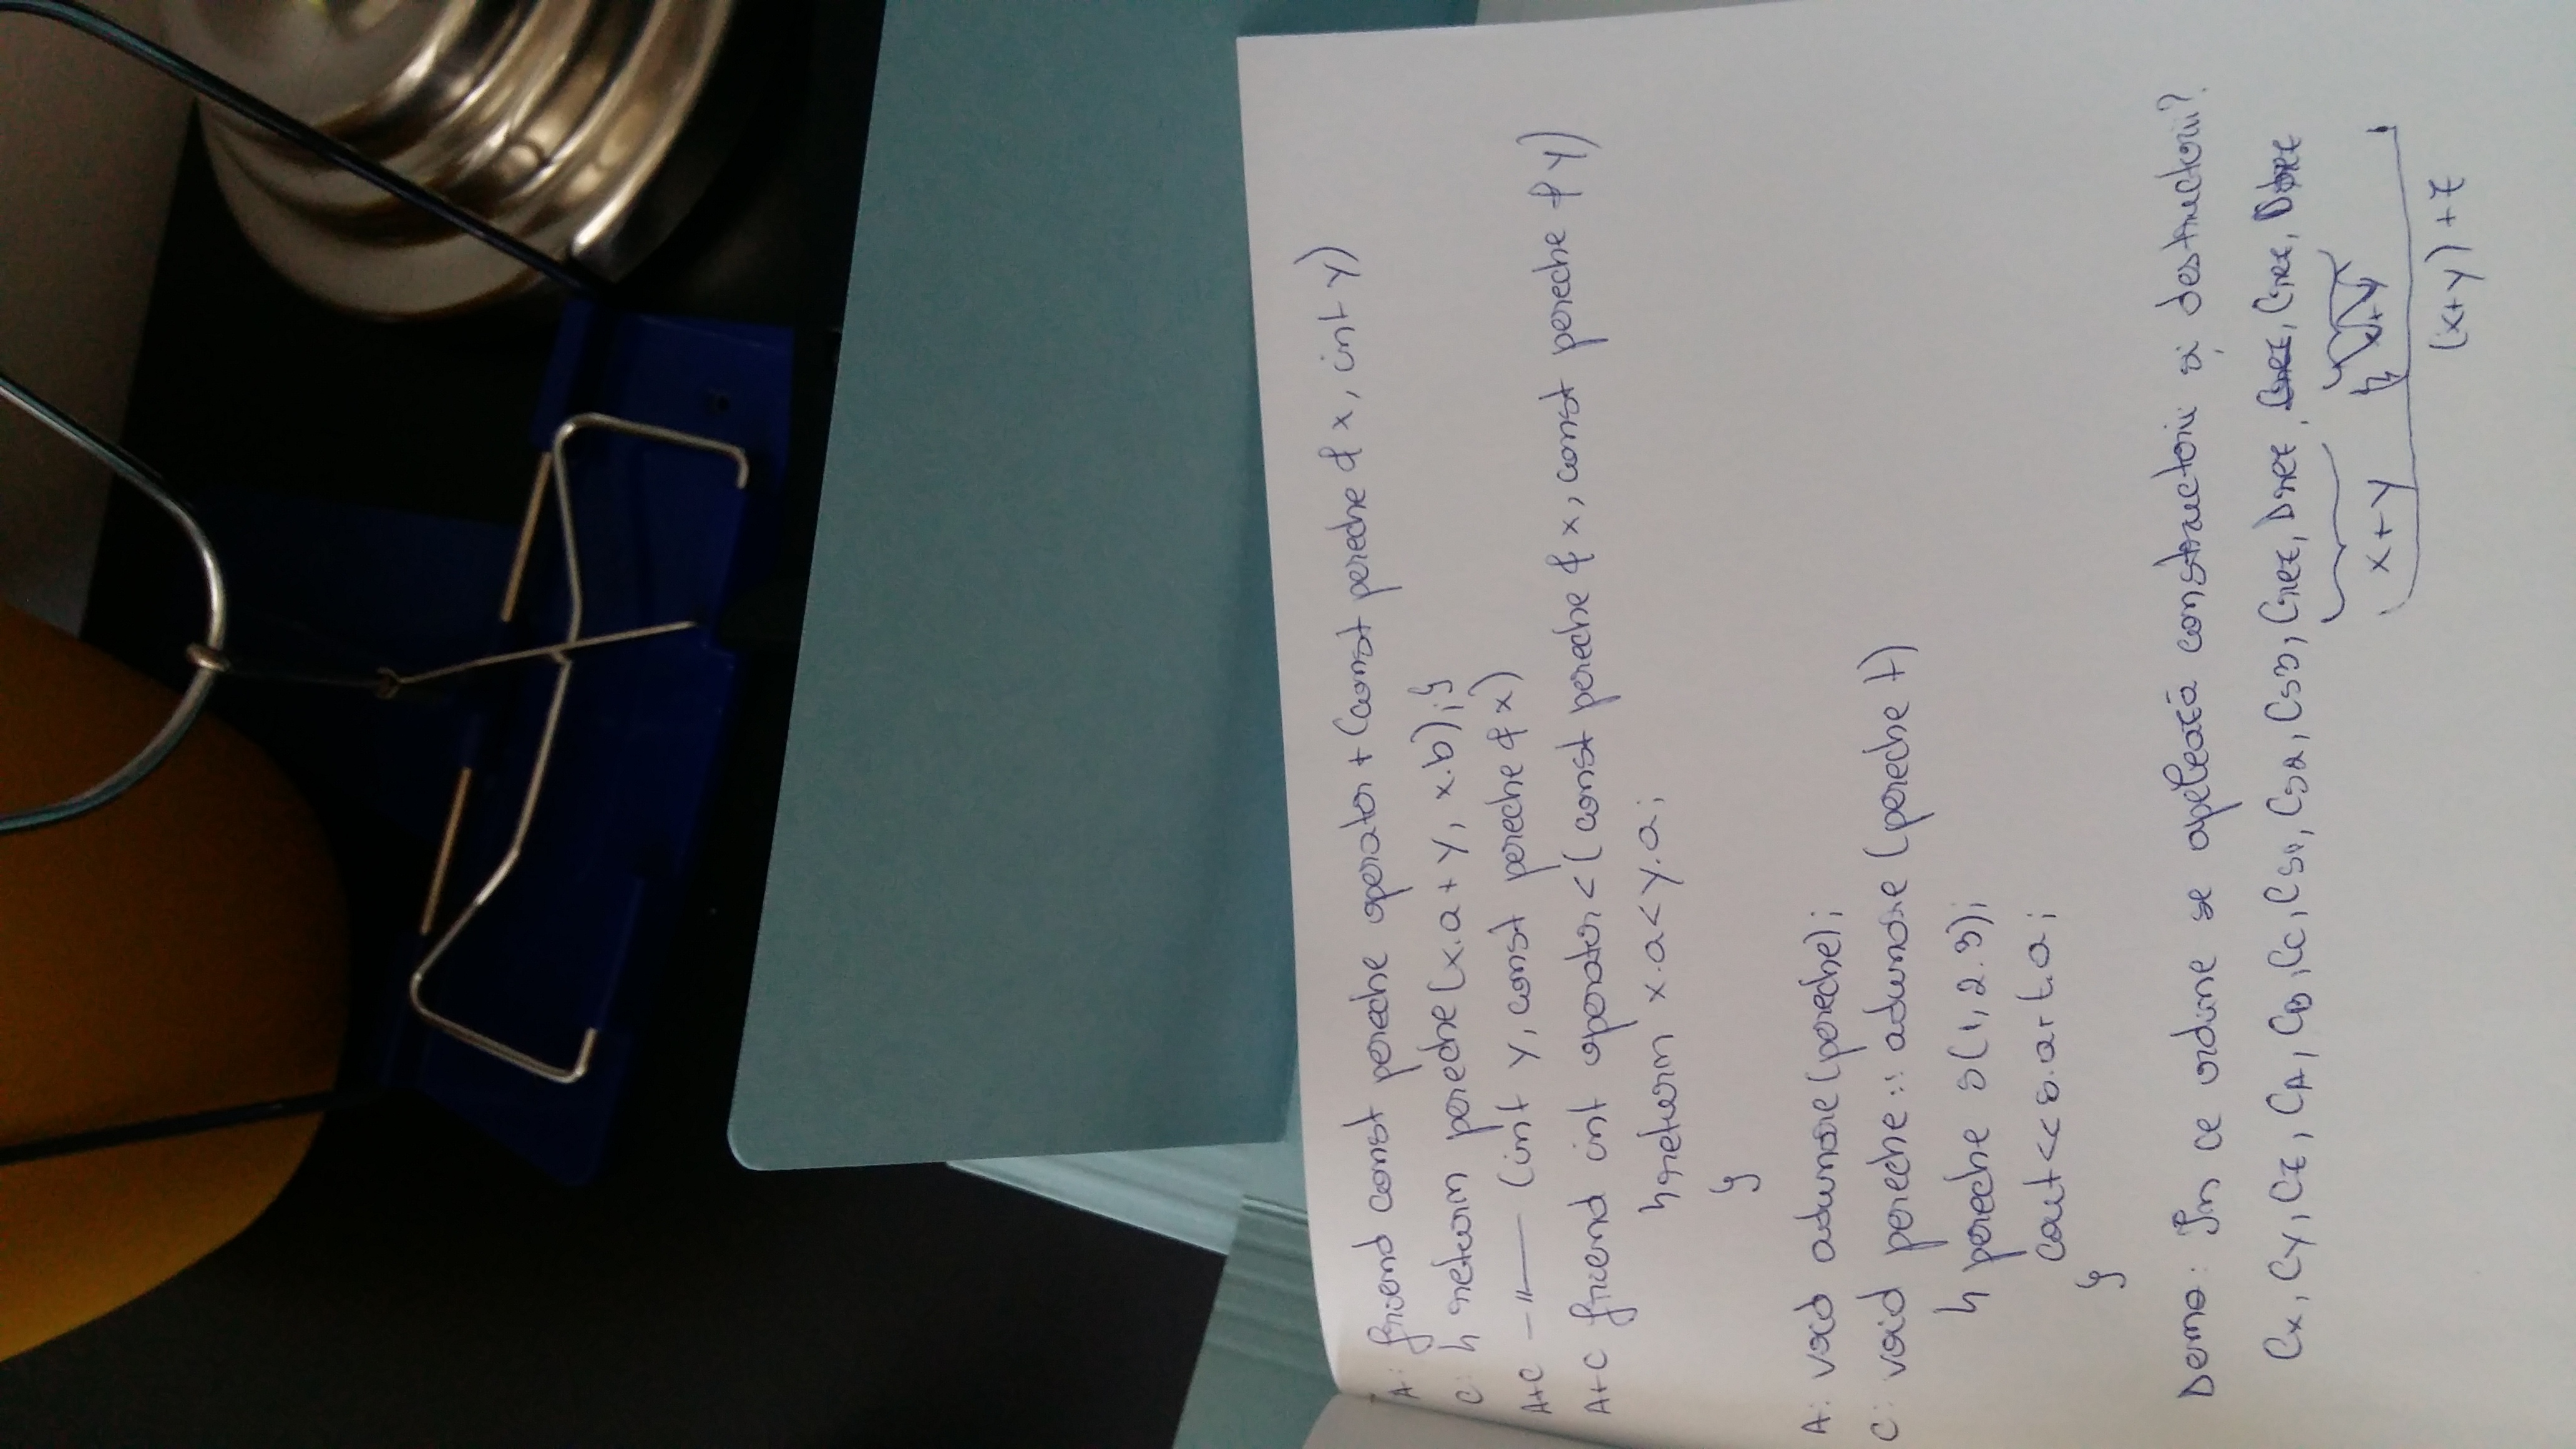 A: friend const pereche operator + (const pereche & x, int y)
C: { return pereche(x.a + y, x.b);}
A+C —"— (int y, const pereche & x)
A+C friend int operator < ( const pereche & x, const pereche & y)
{return x.a < y.a;
}
A: void adunare (pereche);
C: void pereche :: adunare (pereche t)
{ pereche s(1, 2.3);
cout << s.a + t.a;
}
Demo: În ce ordine se apelează constructorii și destructorii?
Cx, Cy, Cz, CA, CB, CC, Cs1, Cs2, Cs3, Crez, Drez, Crez, Crez, Drez
x+y x+y
(x+y) + z